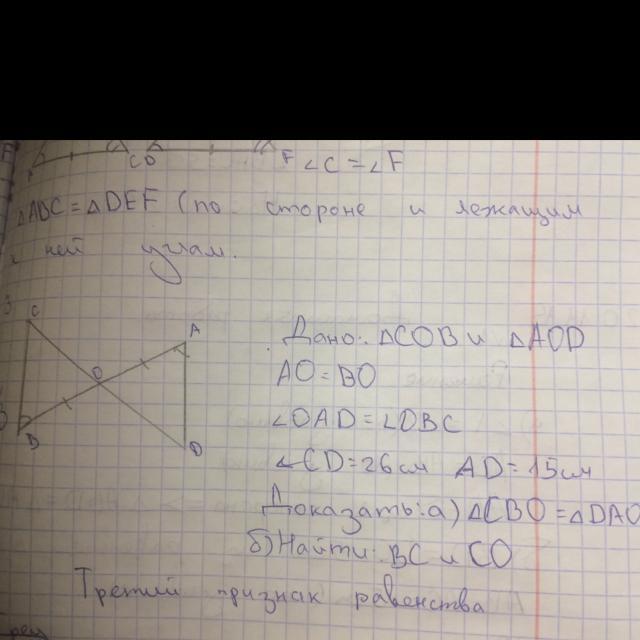 CO F ∠C = ∠F
△ABC = △DEF (по стороне и лежащим
ней углам.
C
A
O
B
D
Дано: △COB и △AOD
AO = BO
∠OAD = ∠OBC
CD = 26 см AD = 15 см
Доказать: а) △CBO = △DAO
б) Найти: BC и CO
Третий признак равенства